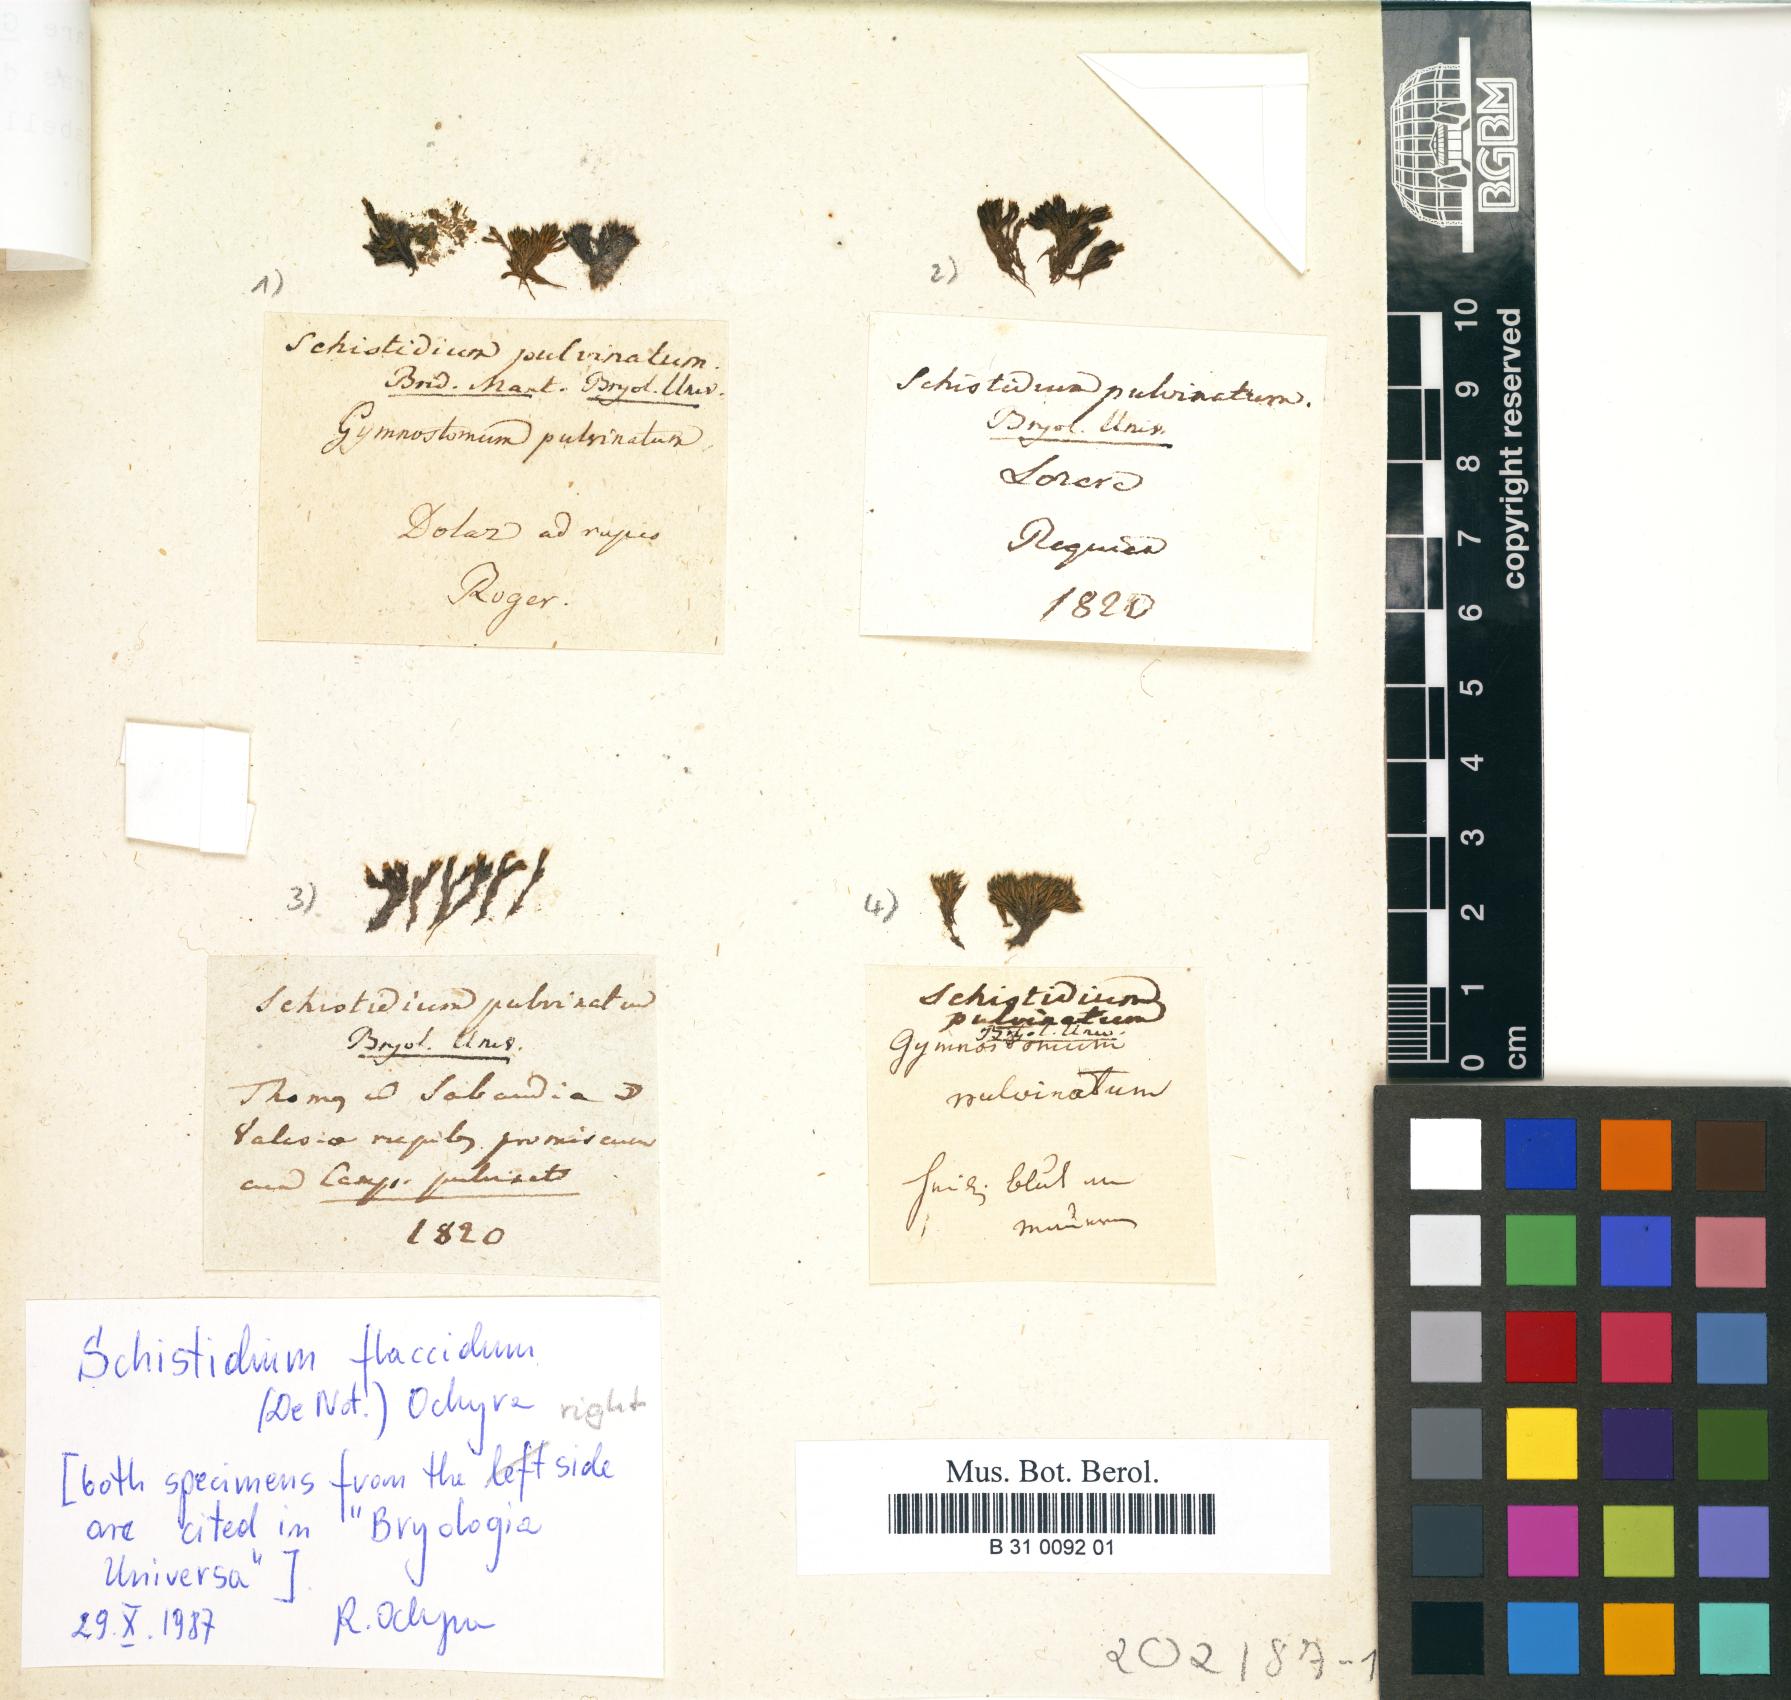 1)
Schistidium pulvinatum.
Brid. Mant. Bryol. Univ.
Gymnostomum pulvinatum
Dolaz ad rupes
Roger.
2)
Schistidium pulvinatum.
Bryol. Univ.
Requien
1820
3)
Schistidium pulvinatum
Bryol. Univ.
Thomas Sabaudia
Valesiae promiscuum
cum Camp. pulvinat
1820
4)
Schistidium
pulvinatum
Bryol. Univ.
Gymnostomum
pulvinatum
Schistidium flaccidum
(De Not.) Ochyra right
[both specimens from the left side
are cited in "Bryologia
Universa"]
29.X.1987 R. Ochyra
Mus. Bot. Berol.
B 31 0092 01
202187-1
BGBM
copyright reserved
10
9
8
7
6
5
4
3
2
1
0
cm